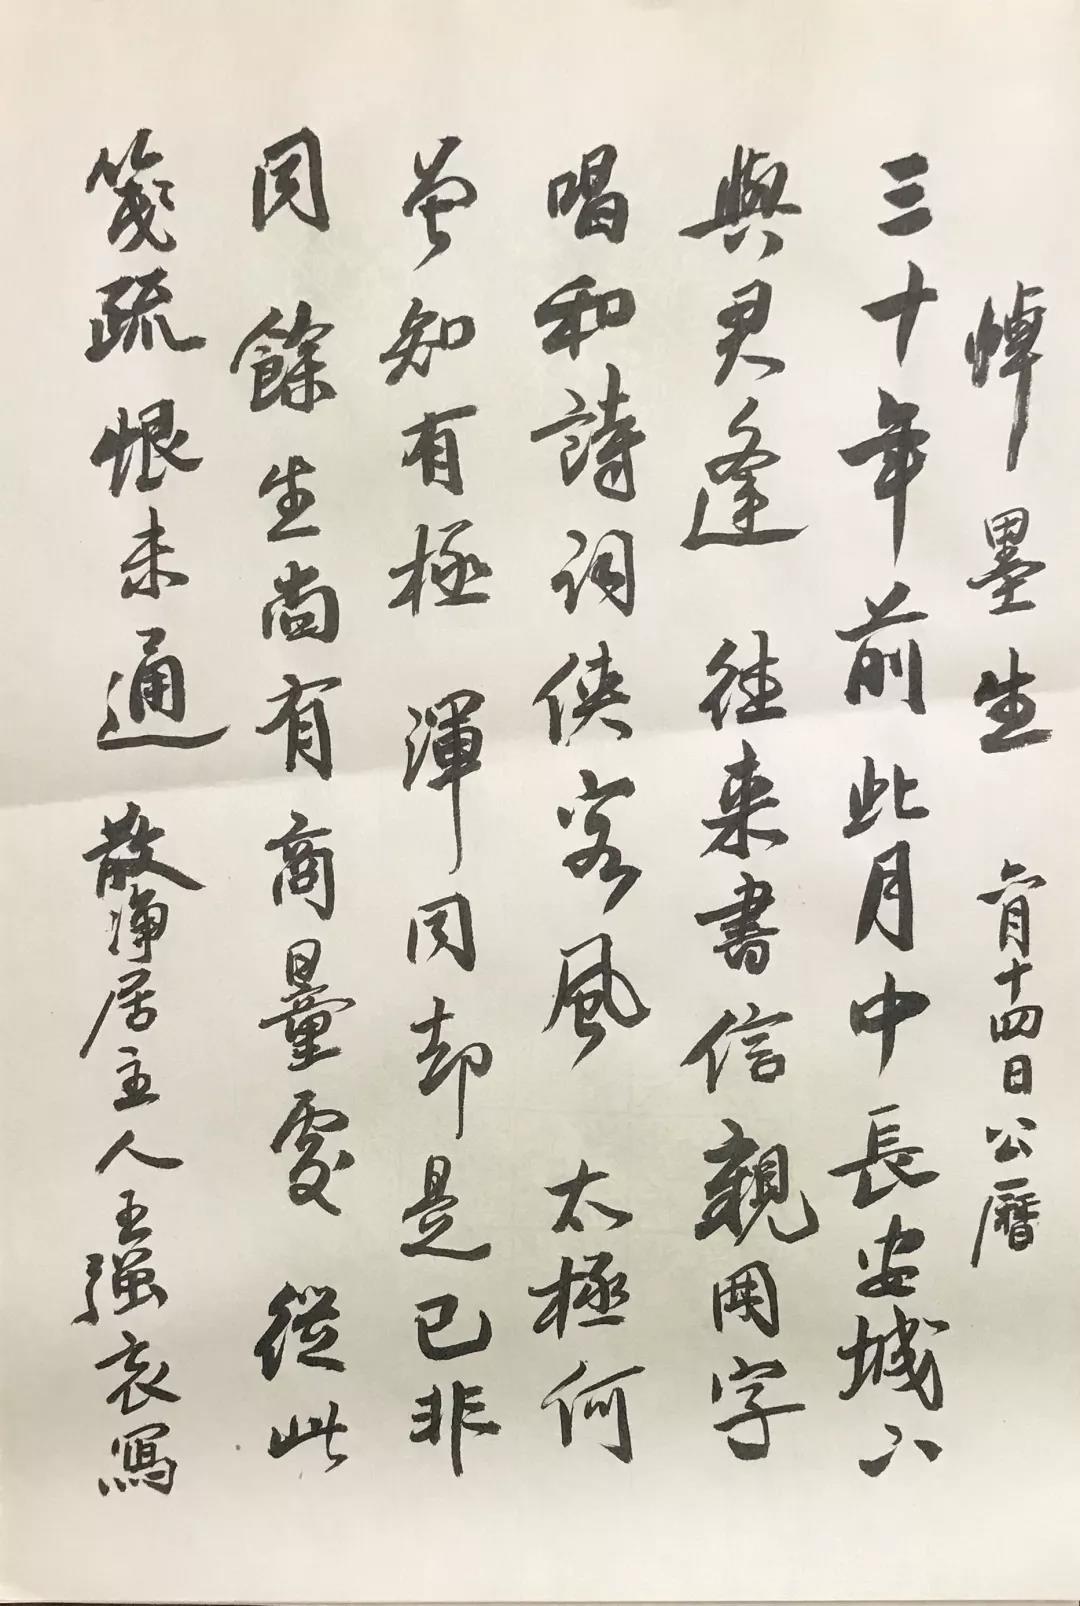 悼墨生 六月十四日公曆
三十年前此月中長安城下
與君逢往來書信親用字
唱和詩詞俠客風太極何
曾知有極渾同却是已非
同餘生尚有商量處從此
箋疏恨未通 散淨居主人王強哀寫